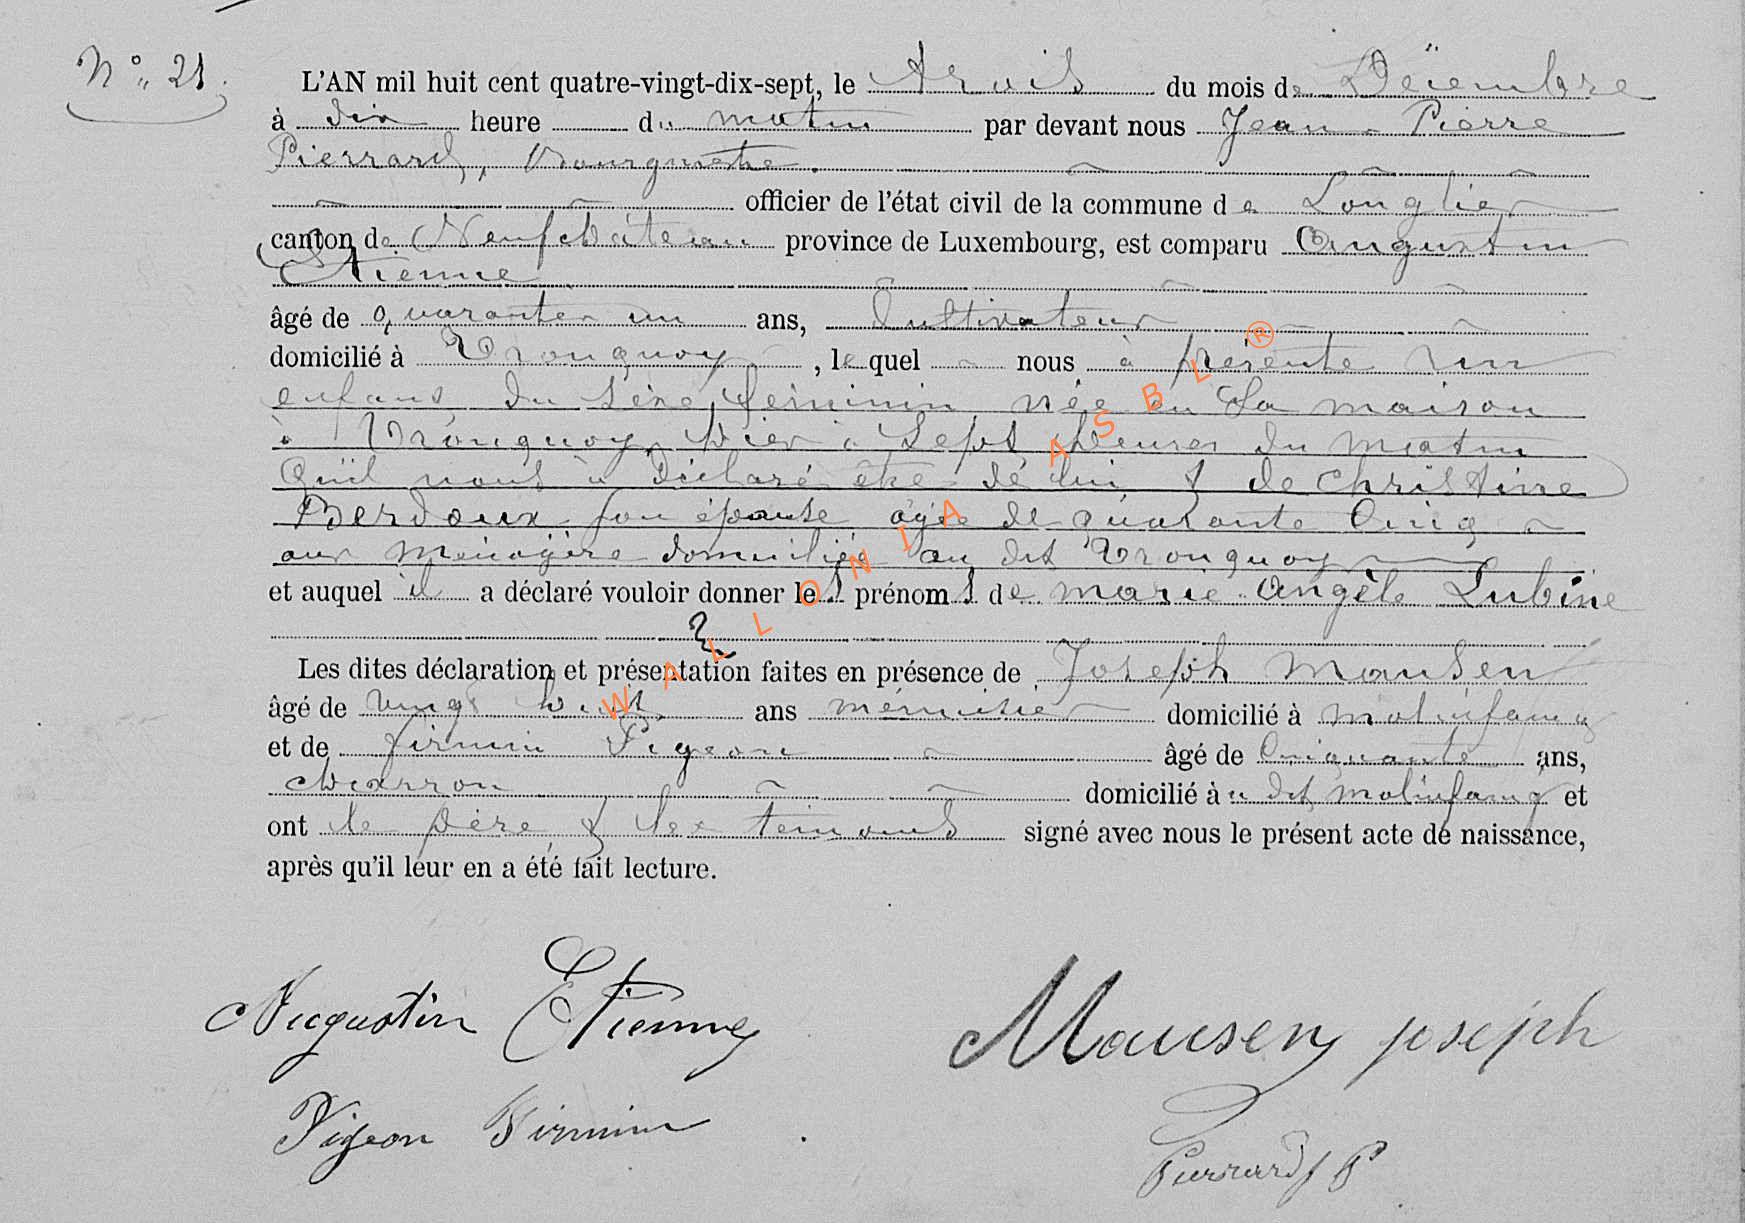 N° 21.
L'AN mil huit cent quatre-vingt-dix-sept, le trois du mois de Décembre
à dix heure du matin par devant nous Jean-Pierre
Pierrard, Bourgmestre.
officier de l'état civil de la commune de Longlier
canton de Neufchâteau province de Luxembourg, est comparu Augustin
Etienne
âgé de quarante un ans, Cultivateur
domicilié à Tronquoy, lequel nous à présenté un
enfant du sexe feminin née en sa maison
à Tronquoy, hier à sept heures du matin
qu'il nous à déclaré être de lui & de Christine
Berdoux son épouse agée de quarante cinq
ans ménagère domiciliée au dit Tronquoy
et auquel il a déclaré vouloir donner les prénoms de marie Angèle Lubine
Les dites déclaration et présentation faites en présence de Joseph Mausen
âgé de vingt huit ans ménuisier domicilié à Molinfaing
et de firmin Pigeon âgé de Cinquante ans,
charron domicilié àu dit Molinfaing et
ont le père & les temoins signé avec nous le présent acte de naissance,
après qu'il leur en a été fait lecture.
Augustin Etienne
Mausen joseph
Pigeon Firmin
Pierrard J P
WALLONIA ASBL ®